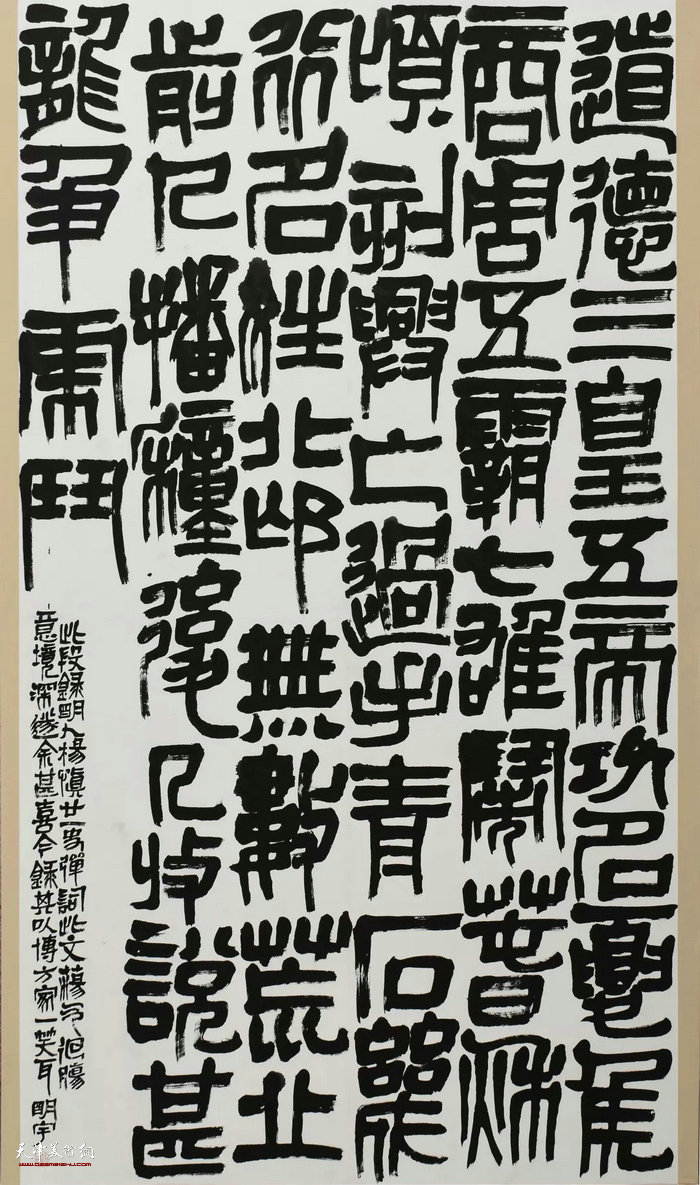 道德三皇五帝功名夏矦
商周五霸七雄鬧萅秋
頃刻興亡過手青石
行名姓北邙無數荒丘
前人播種後人收說甚
龍爭虎鬥
此段錄明人楊慎廿一史彈詞此文蕩氣迴腸
意境深邃余甚喜今錄其以博方家一笑耳 明宇
天津美術網